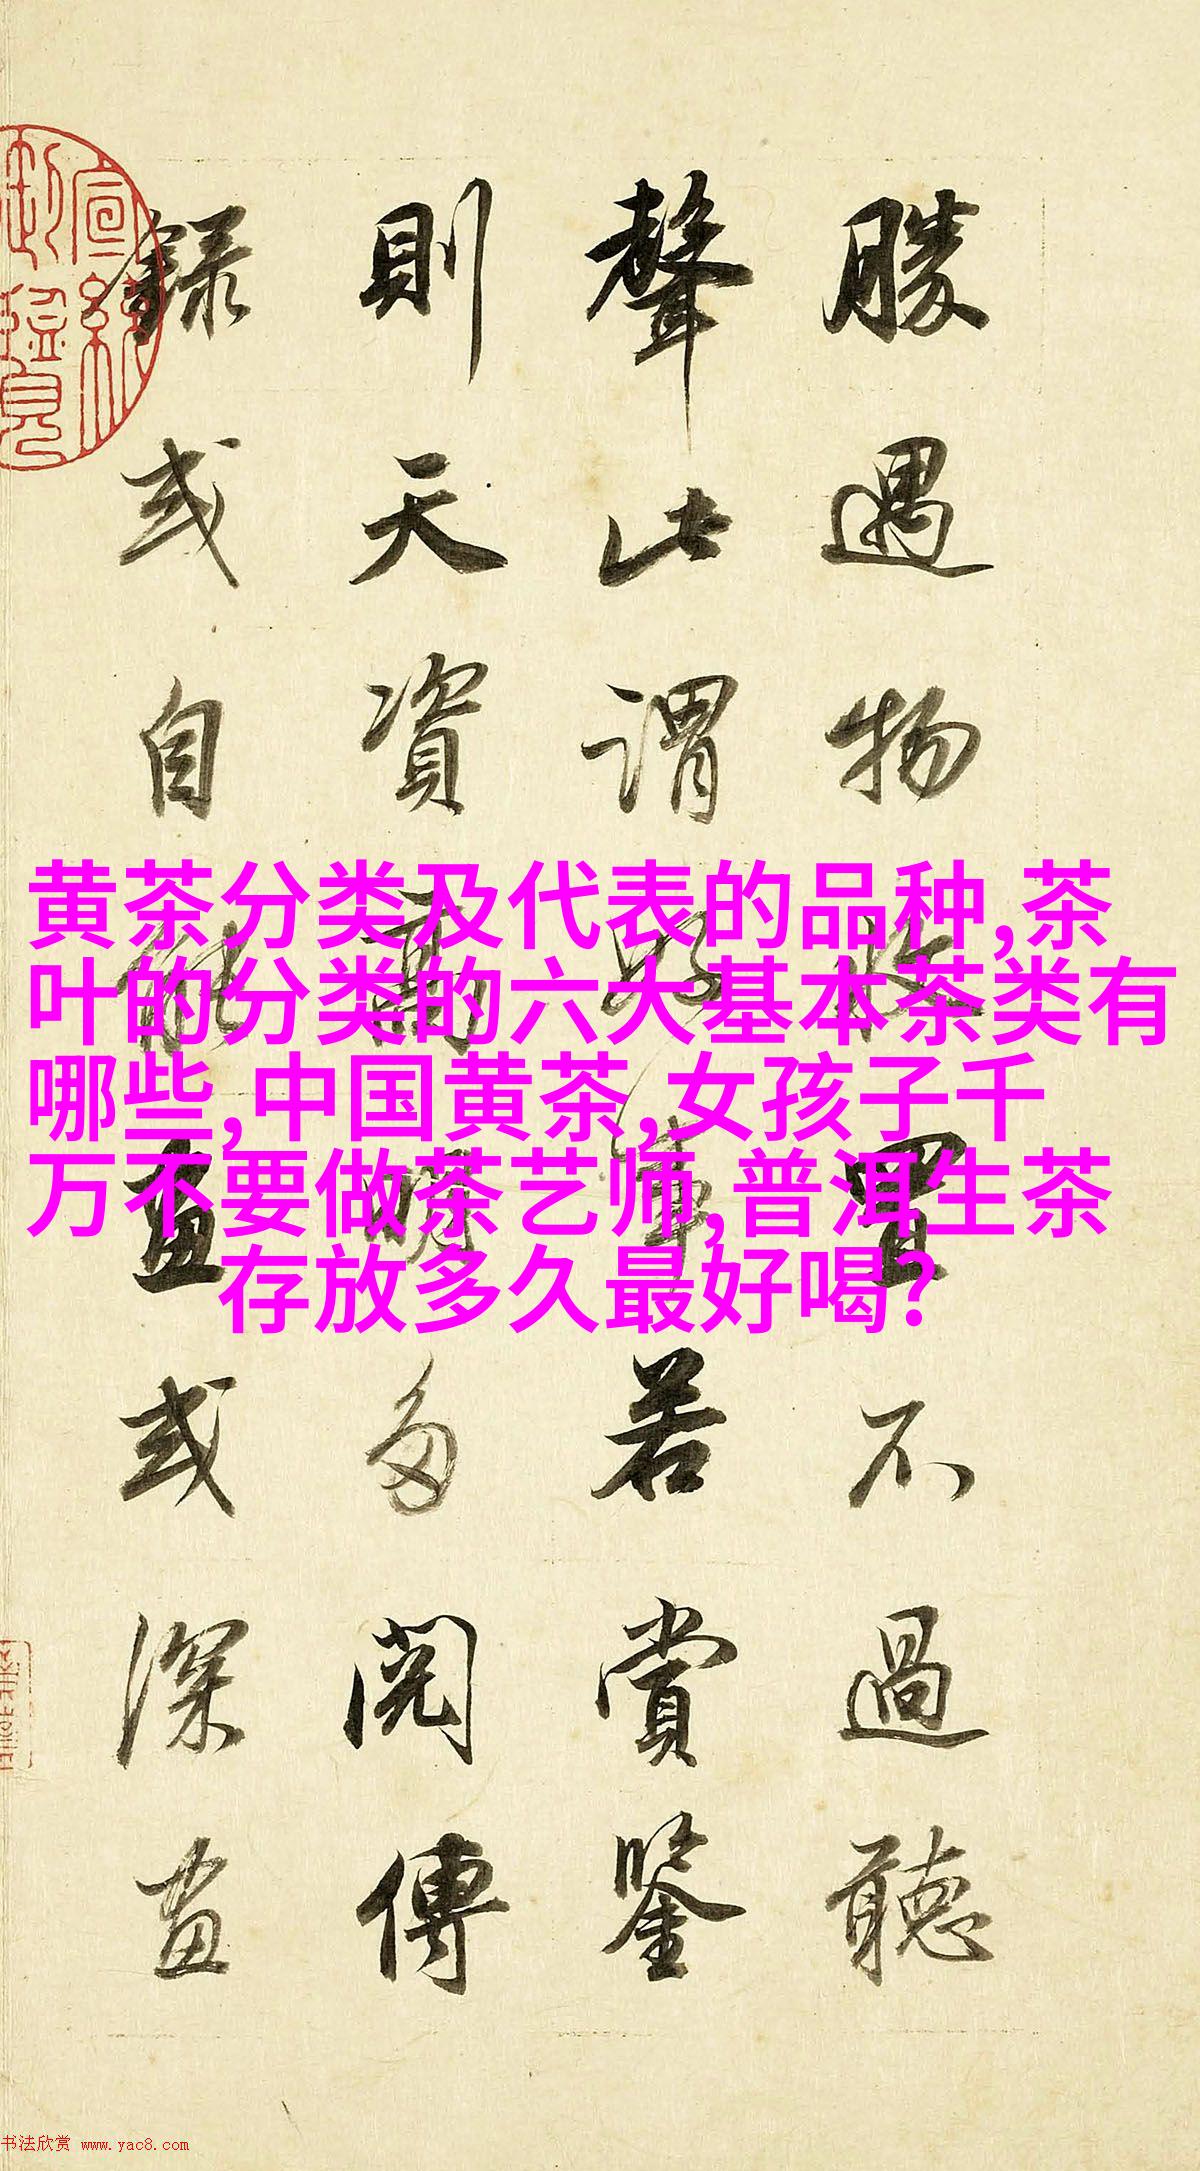 勝遇物收置不過聽
聲此謂好事若賞鑒
則天資高明多閱傳
錄或自能畫或深畫
宣統
御覽
黄茶分类及代表的品种,茶
叶的分类的六大基本茶类有
哪些,中国黄茶,女孩子千
万不要做茶艺师,普洱生茶
存放多久最好喝?
书法欣赏 www.yac8.com